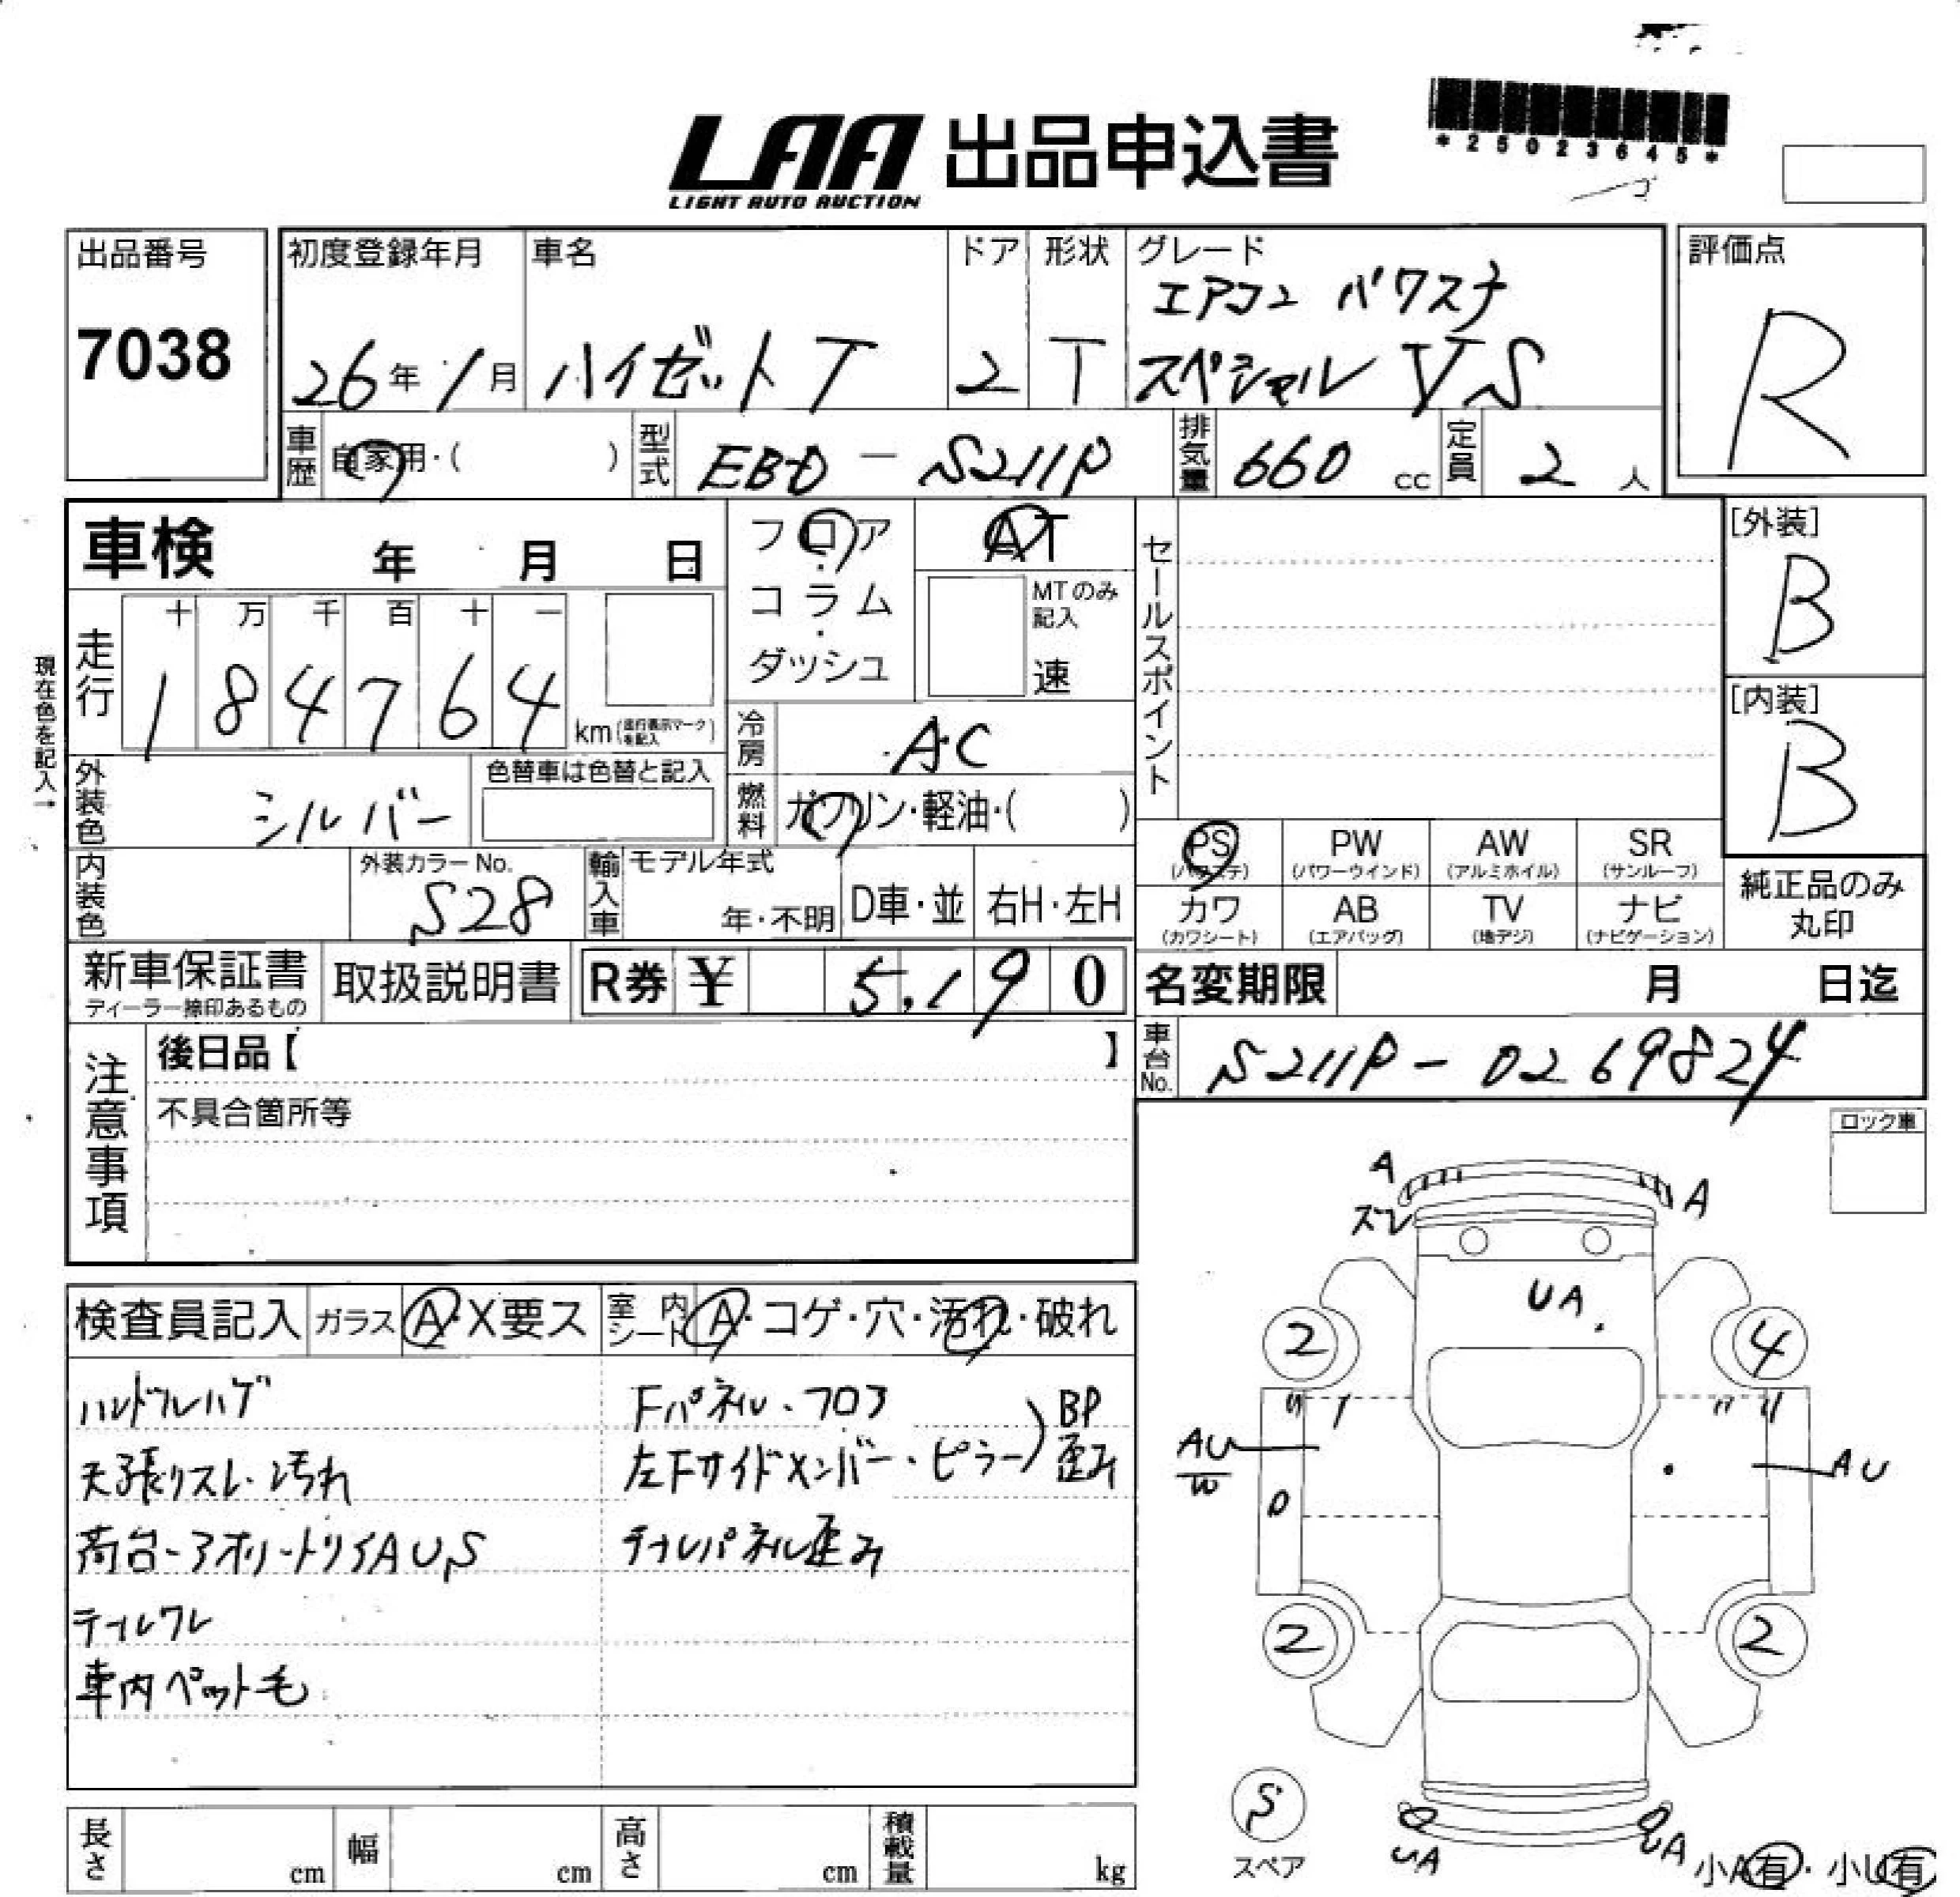 LAA 出品申込書
LIGHT AUTO AUCTION
*25023645*
出品番号
7038
初度登録年月
26年1月
車名
ハイゼットT
ドア
2
形状
T
グレード
エアコン パワステ
スペシャル VS
評価点
R
車歴
自家用・( )
型式
EBD-S211P
排気量
660 cc
定員
2 人
車検 年 月 日
フロア
コラム
・
ダッシュ
AT
MTのみ
記入
速
セールスポイント
[外装]
B
[内装]
B
現在色を記入→
走行
十 万 千 百 十 一
1 8 4 7 6 4
km(走行表示マークを記入)
冷房
AC
外装色
シルバー
色替車は色替と記入
燃料
ガソリン・軽油・( )
内装色
外装カラーNo.
S28
輸入車
モデル年式
年・不明
D車・並
右H・左H
PS
(パワステ)
PW
(パワーウインド)
AW
(アルミホイル)
SR
(サンルーフ)
カワ
(カワシート)
AB
(エアバッグ)
TV
(地デジ)
ナビ
(ナビゲーション)
純正品のみ
丸印
新車保証書
ディーラー捺印あるもの
取扱説明書
R券 ¥ 5,190
名変期限 月 日迄
車台No.
S211P-0269824
注意事項
後日品【 】
不具合箇所等
ロック車
検査員記入
ガラス
A・X要ス
室内
シート
A・コゲ・穴・汚れ・破れ
ハンドルハゲ
天張リスレ・汚れ
荷台・アオリ・トリイAUS
テールワレ
車内ペット毛
Fパネル・フロア
左Fサイドメンバー・ピラー)BP歪み
テールパネル歪み
A
ズレ
A
UA
2
4
AU
W
D
AU
2
2
S
スペア
UA
UA
小A有・小U有
長さ cm
幅 cm
高さ cm
積載量 kg